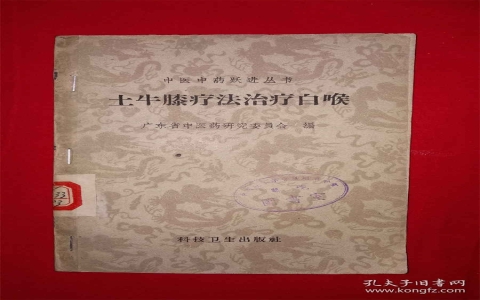 中医中药跃进丛书
土牛膝疗法治疗白喉
广东省中医药研究委员会 编
科技卫生出版社
孔夫子旧书网
www.kongfz.com